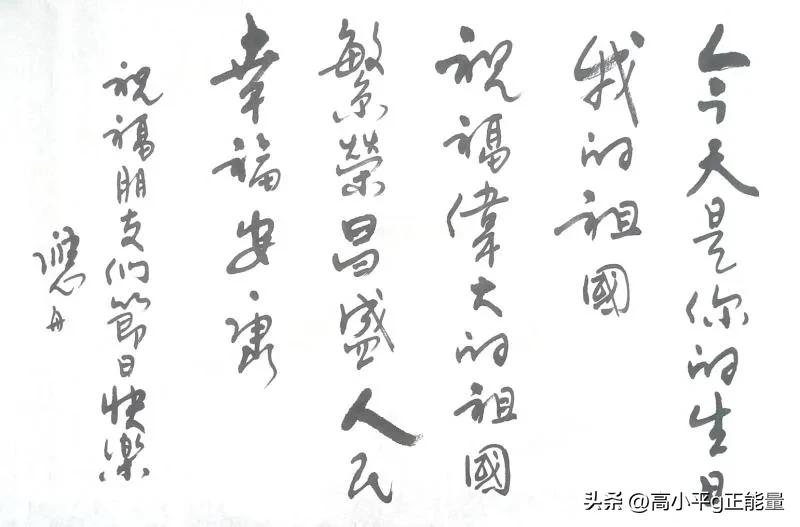 今天是你的生日
我的祖國
祝福偉大的祖國
繁榮昌盛人民
幸福安康
祝福朋友们節日快樂
頭条 @高小平g正能量